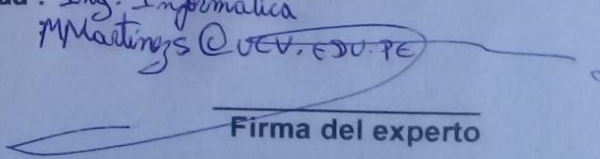 : Ing. Informatica
MMartinezs@UCV.EDU.PE
Firma del experto